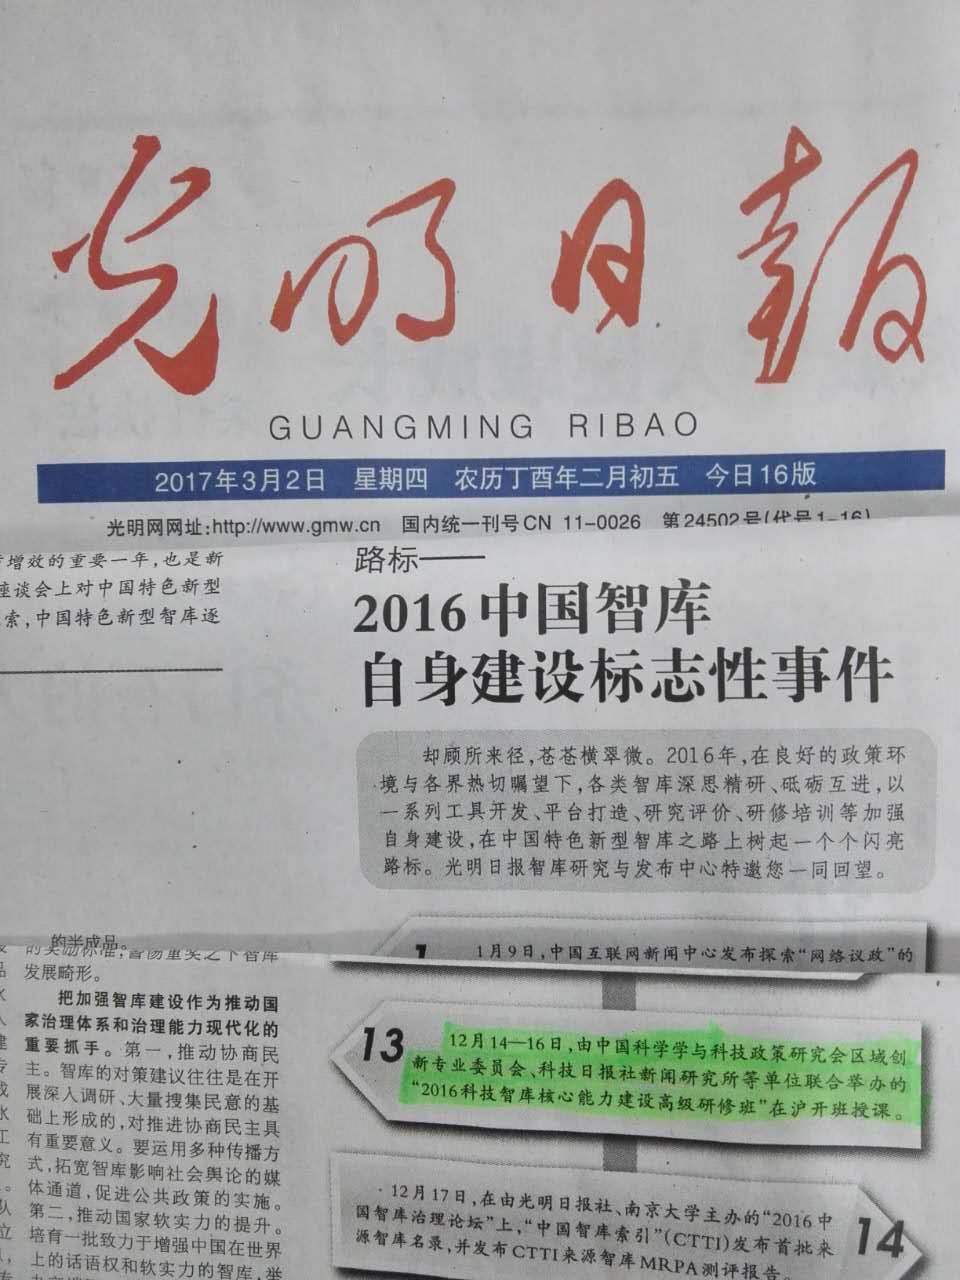 光明日报
GUANGMING RIBAO
2017年3月2日 星期四 农历丁酉年二月初五 今日16版
光明网网址:http://www.gmw.cn 国内统一刊号CN 11-0026 第24502号(代号1-16)
增效的重要一年,也是新
座谈会上对中国特色新型
索,中国特色新型智库逐
路标——
2016中国智库
自身建设标志性事件
却顾所来径,苍苍横翠微。2016年,在良好的政策环
境与各界热切嘱望下,各类智库深思精研、砥砺互进,以
一系列工具开发、平台打造、研究评价、研修培训等加强
自身建设,在中国特色新型智库之路上树起一个个闪亮
路标。光明日报智库研究与发布中心特邀您一同回望。
1
1月9日,中国互联网新闻中心发布探索“网络议政”的
13
12月14—16日,由中国科学学与科技政策研究会区域创
新专业委员会、科技日报社新闻研究所等单位联合举办的
“2016科技智库核心能力建设高级研修班”在沪开班授课。
12月17日,在由光明日报社、南京大学主办的“2016中
国智库治理论坛”上,“中国智库索引”(CTTI)发布首批来
源智库名录,并发布CTTI来源智库MRPA测评报告。
14
的半成品。
的奖励标准,重奖之下智库
发展畸形。
把加强智库建设作为推动国
家治理体系和治理能力现代化的
重要抓手。第一,推动协商民
主。智库的对策建议往往是在开
展深入调研、大量搜集民意的基
础上形成的,对推进协商民主具
有重要意义。要运用多种传播方
式,拓宽智库影响社会舆论的媒
体通道,促进公共政策的实施。
第二,推动国家软实力的提升。
培育一批致力于增强中国在世界
上的话语权和软实力的智库,举